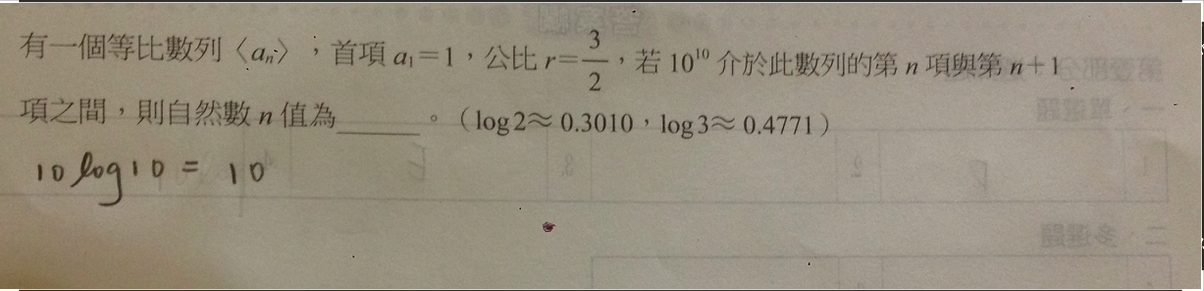 有一個等比數列〈aₙ〉，首項 a₁=1，公比 r=3/2，若 10¹⁰ 介於此數列的第 n 項與第 n+1
項之間，則自然數 n 值為______。（log2≈ 0.3010，log3≈ 0.4771）
10 log10 = 10